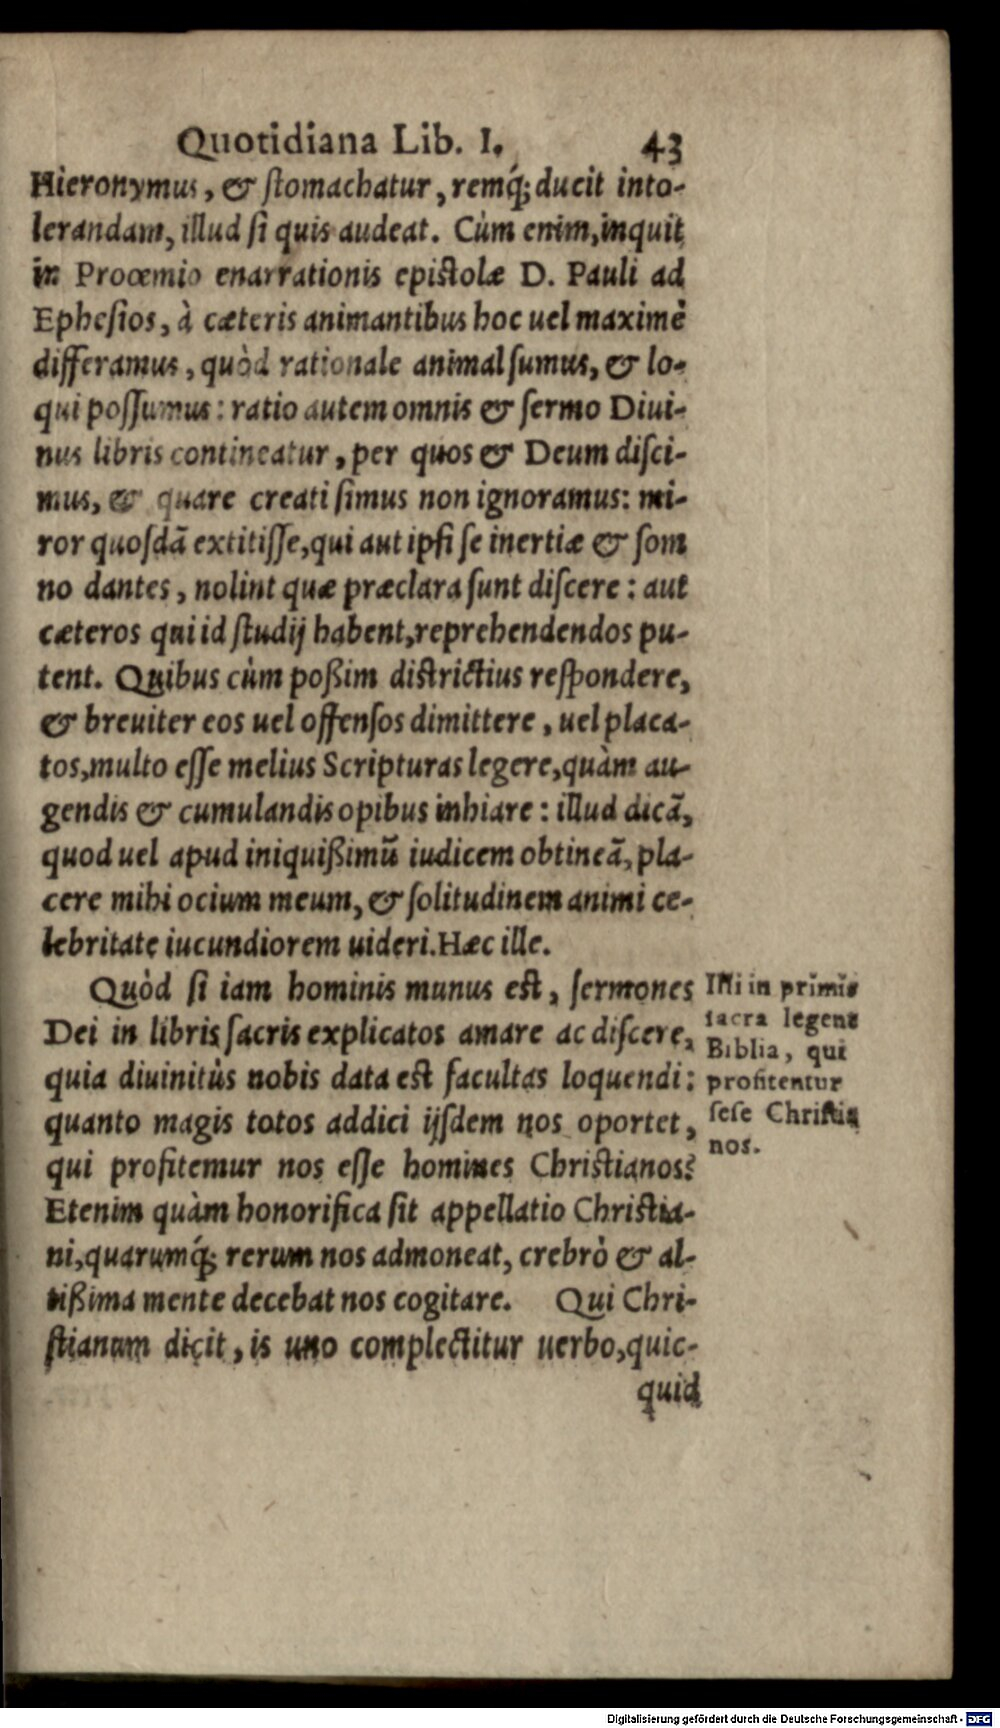 Quotidiana Lib. I. 43
Hieronymus, & ſtomachatur, remq́; ducit into-
lerandam, illud ſi quis audeat. Cùm enim, inquit
in Proœmio enarrationis epiſtolæ D. Pauli ad
Epheſios, à cæteris animantibus hoc uel maximè
differamus, quòd rationale animal ſumus, & lo-
qui poſſumus: ratio autem omnis & ſermo Diui-
nus libris contineatur, per quos & Deum diſci-
mus, & quare creati ſimus non ignoramus: mi-
ror quoſdã extitiſſe, qui aut ipſi ſe inertiæ & ſom
no dantes, nolint quæ præclara ſunt diſcere: aut
cæteros qui id ſtudij habent, reprehendendos pu-
tent. Quibus cùm poßim diſtrictius reſpondere,
& breuiter eos uel offenſos dimittere, uel placa-
tos, multo eſſe melius Scripturas legere, quàm au-
gendis & cumulandis opibus inhiare: illud dicã,
quod uel apud iniquißimũ iudicem obtineã, pla-
cere mihi ocium meum, & ſolitudinem animi ce-
lebritate iucundiorem uideri. Hæc ille.
Quòd ſi iam hominis munus eſt, ſermones
Dei in libris ſacris explicatos amare ac diſcere,
quia diuinitùs nobis data eſt facultas loquendi:
quanto magis totos addici ijſdem nos oportet,
qui profitemur nos eſſe homines Chriſtianos?
Etenim quàm honorifica ſit appellatio Chriſtia-
ni, quarumq́; rerum nos admoneat, crebrò & al-
tißima mente decebat nos cogitare. Qui Chri-
ſtianum dicit, is uno complectitur uerbo, quic-
quid
Illi in primis
ſacra legent
Biblia, qui
profitentur
ſeſe Chriſtia
nos.
Digitalisierung gefördert durch die Deutsche Forschungsgemeinschaft - DFG